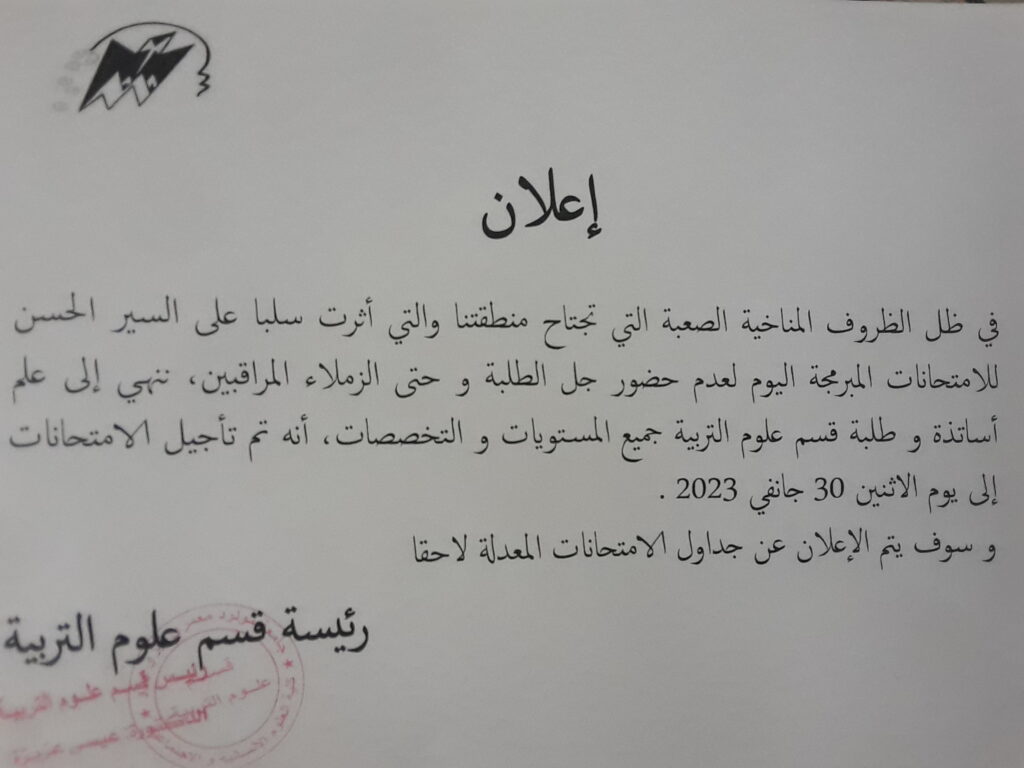 إعلان
في ظل الظروف المناخية الصعبة التي تجتاح منطقتنا والتي أثرت سلبا على السير الحسن
للامتحانات المبرمجة اليوم لعدم حضور جل الطلبة و حتى الزملاء المراقبين، ننهي إلى علم
أساتذة و طلبة قسم علوم التربية جميع المستويات و التخصصات، أنه تم تأجيل الامتحانات
إلى يوم الاثنين 30 جانفي 2023 .
و سوف يتم الإعلان عن جداول الامتحانات المعدلة لاحقا
رئيسة قسم علوم التربية
رئيس قسم علوم التربية